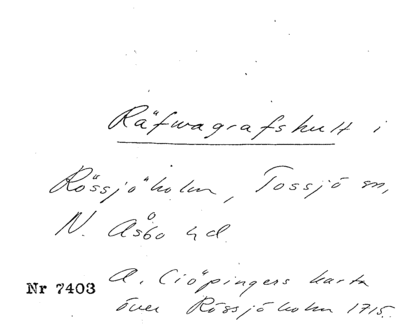 Räfwagrafshult i
Rössjöholm, Tossjö sn,
N. Åsbo hd.
A. Ciöpingers karta
Nr 7403
över Rössjöholm 1715.